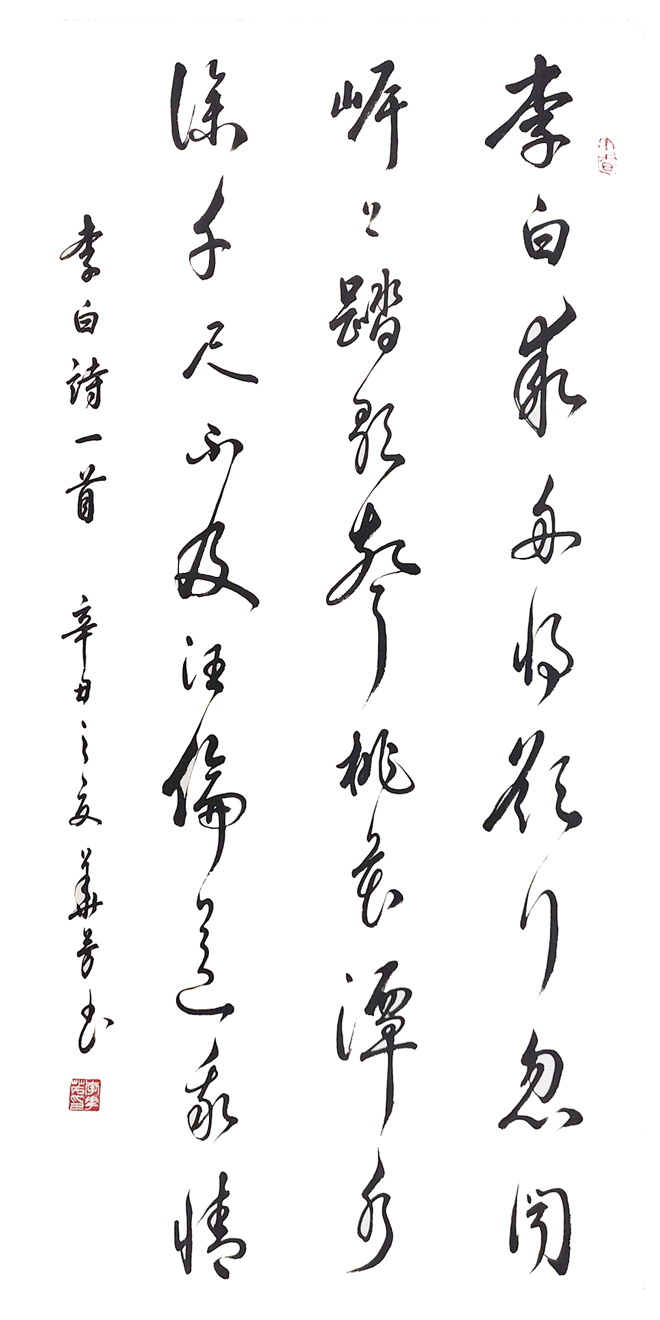 李白乘舟将欲行忽闻
岸上踏歌声桃花潭水
深千尺不及汪倫送我情
李白詩一首 辛丑之夏 華芳书